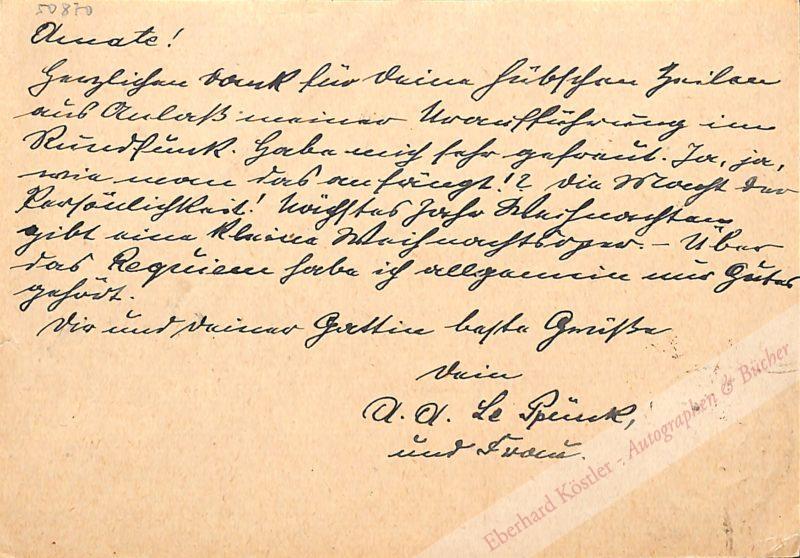 50870
Amate!
Herzlichen Dank für Deine hübschen Zeilen
aus Anlaß meiner Uraufführung im
Rundfunk. Habe mich sehr gefreut. Ja, ja,
wie man das anfängt!? Die Macht der
Persönlichkeit! Nächstes Jahr Weihnachten
gibt eine kleine Weihnachtsoper. – Über
das Requiem habe ich allgemein nur Gutes
gehört.
Dir und Deiner Gattin beste Grüße
Dein
A. A.
und Frau.
Eberhard Köstler - Autographen & Bücher